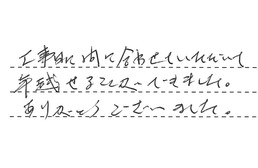 工事日に間に合わせていただいて
年越せることができました。
ありがとうございました。